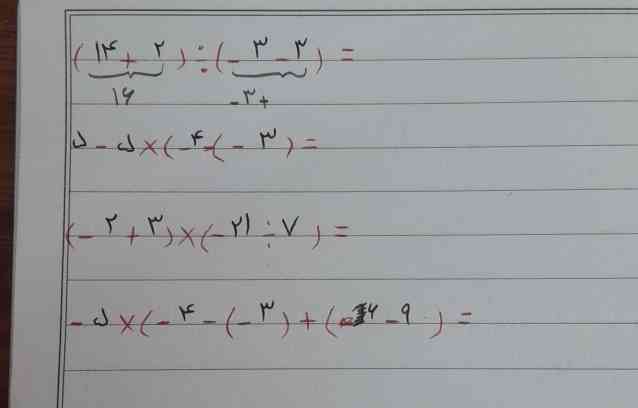 (۱۴ + ۲) ÷ (-۳ - ۳) =
۱۶ -۳+
۵ - ۵ × (-۴ - (-۳) =
(-۲ + ۳) × (-۲۱ ÷ ۷) =
-۵ × (-۴ - (-۳) + (-۶ - ۹) =